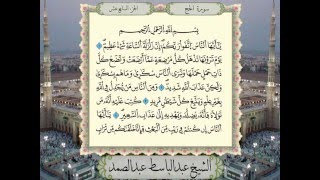 سورة الحج الجزء السابع عشر
بِسْمِ اللَّهِ الرَّحْمَٰنِ الرَّحِيمِ
يَٰٓأَيُّهَا ٱلنَّاسُ ٱتَّقُوا۟ رَبَّكُمْ إِنَّ زَلْزَلَةَ ٱلسَّاعَةِ شَىْءٌ عَظِيمٌ ۝١
يَوْمَ تَرَوْنَهَا تَذْهَلُ كُلُّ مُرْضِعَةٍ عَمَّآ أَرْضَعَتْ وَتَضَعُ كُلُّ
ذَاتِ حَمْلٍ حَمْلَهَا وَتَرَى ٱلنَّاسَ سُكَٰرَىٰ وَمَا هُم بِسُكَٰرَىٰ
وَلَٰكِنَّ عَذَابَ ٱللَّهِ شَدِيدٌ ۝٢ وَمِنَ ٱلنَّاسِ مَن يُجَٰدِلُ فِى ٱللَّهِ
بِغَيْرِ عِلْمٍ وَيَتَّبِعُ كُلَّ شَيْطَٰنٍ مَّرِيدٍ ۝٣ كُتِبَ عَلَيْهِ أَنَّهُۥ مَن
تَوَلَّاهُ فَأَنَّهُۥ يُضِلُّهُۥ وَيَهْدِيهِ إِلَىٰ عَذَابِ ٱلسَّعِيرِ ۝٤ يَٰٓأَيُّهَا
ٱلنَّاسُ إِن كُنتُمْ فِى رَيْبٍ مِّنَ ٱلْبَعْثِ فَإِنَّا خَلَقْنَٰكُم مِّن تُرَابٍ
الشيخ عبدالباسط عبدالصمد